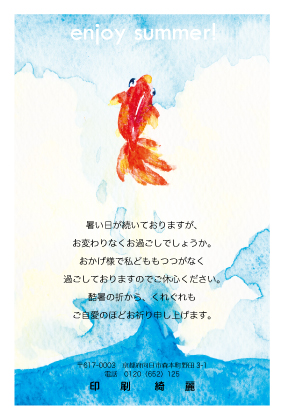 enjoy summer!
暑い日が続いておりますが、
お変わりなくお過ごしでしょうか。
おかげ様で私どももつつがなく
過ごしておりますのでご休心ください。
酷暑の折から、くれぐれも
ご自愛のほどお祈り申し上げます。
〒617-0003 京都府向日市森本町野田 3-1
電話 0120（652）125
印刷綺麗